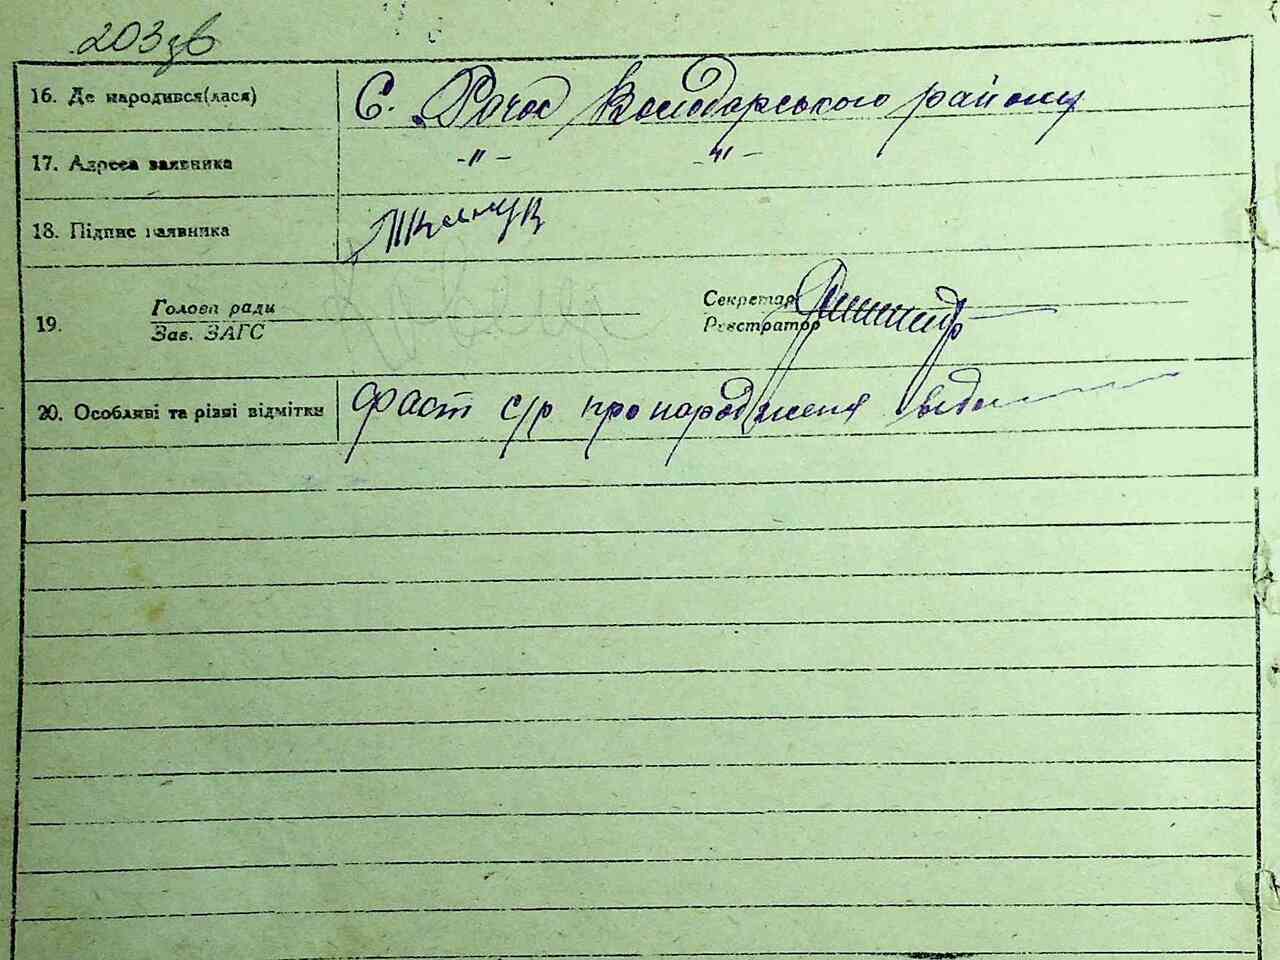 203зв
16. Де народився(лася) С. Рачос Володарського району
17. Адреса заявника -"- -"-
18. Підпис заявника
19. Голова ради Секретар
Зав. ЗАГС Реєстратор
20. Особливі та різні відмітки Фаст с/р про народження